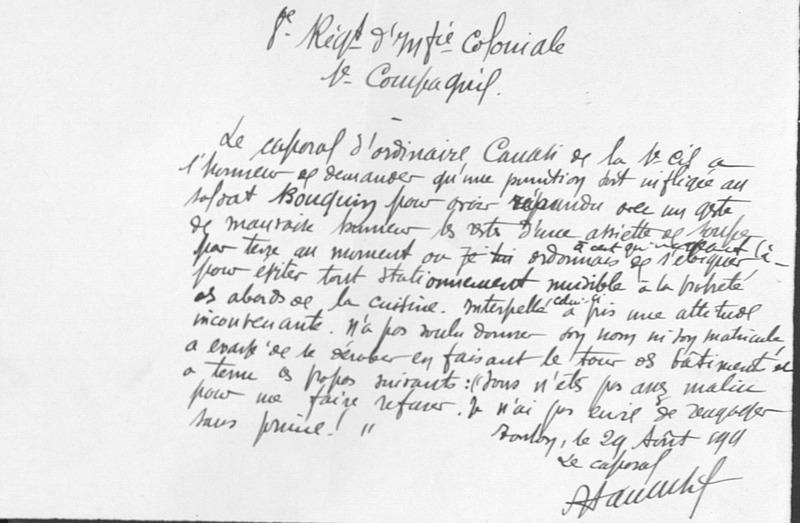 8e Régt d'Infie Coloniale
1e Compagnie.
Le caporal d'ordinaire Canati de la 1e Cie a
l'honneur de demander qu'une punition soit infligée au
soldat Bouquin pour avoir répandu avec un geste
de mauvaise humeur les restes d'une assiette de soupe
par terre au moment où je lui ordonnais à ceux qui de s'éloigner
pour éviter tout stationnement nuisible à la propreté
des abords de la cuisine. Interpellé celui-ci a pris une attitude
inconvenante. N'a pas voulu donner son nom ni son matricule,
a essayé de se dérober en faisant le tour des bâtiments et
a tenu les propos suivants : "Vous n'êtes pas assez malin
pour me faire refuser. Je n'ai pas envie de rengager
sans prime ! "
Toulon, le 29 Août 1911
Le caporal